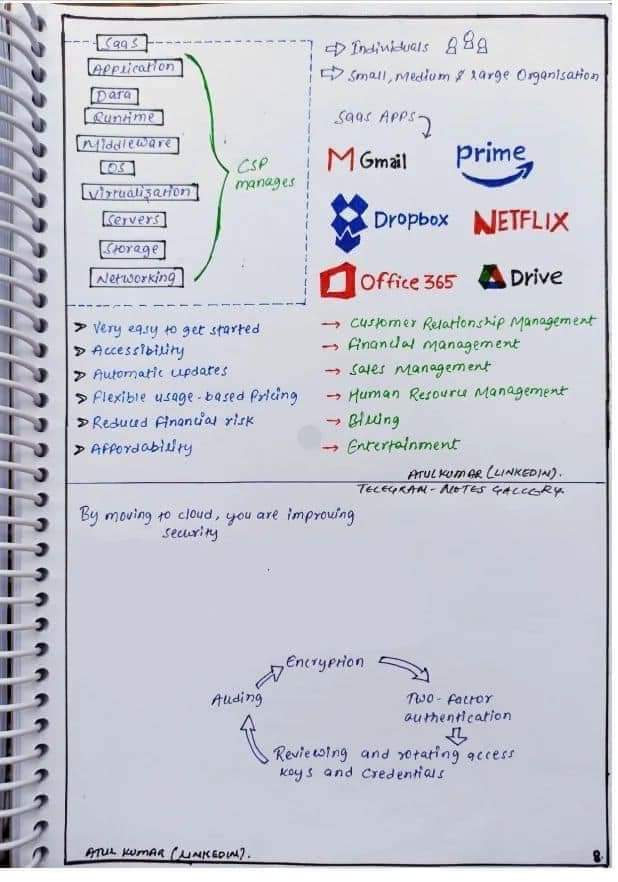 SaaS
Application
Data
Runtime
Middleware
OS
Virtualization
Servers
Storage
Networking
CSP
manages
Individuals
Small, Medium & Large Organisation
SaaS APPS
M Gmail
prime
Dropbox
NETFLIX
Office 365
Drive
Very easy to get started
Accessibility
Automatic updates
Flexible usage-based Pricing
Reduced financial risk
Affordability
Customer Relationship Management
Financial Management
Sales Management
Human Resource Management
Billing
Entertainment
ATUL KUMAR (LINKEDIN).
TELEGRAM - NOTES GALLERY.
By moving to cloud, you are improving
security
Encryption
Two-factor
authentication
Reviewing and rotating access
keys and Credentials
Auding
ATUL KUMAR (LINKEDIN).
8